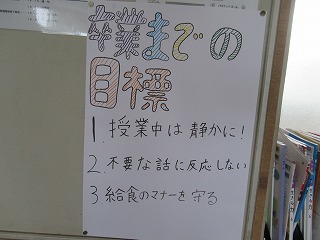 卒業までの
目標
1. 授業中は静かに!
2. 不要な話に反応しない
3 給食のマナーを守る